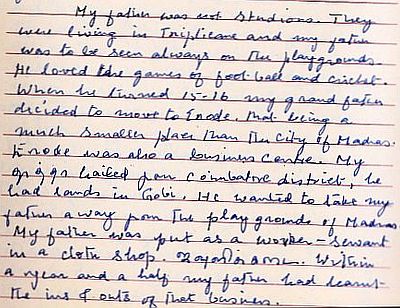 My father was not studious. They
were living in Triplicane and my father
was to be seen always on the playgrounds.
He loved the games of foot-ball and cricket.
When he turned 15-16 my grand father
decided to move to Erode, that being a
much smaller place than the City of Madras.
Erode was also a business Centre. My
hailed from Coimbatore district, he
had lands in Gobi. He wanted to take my
father away from the play grounds of Madras
My father was put as a worker-servant
in a cloth shop. Within
a year and a half my father had learnt
the ins & outs of that business.